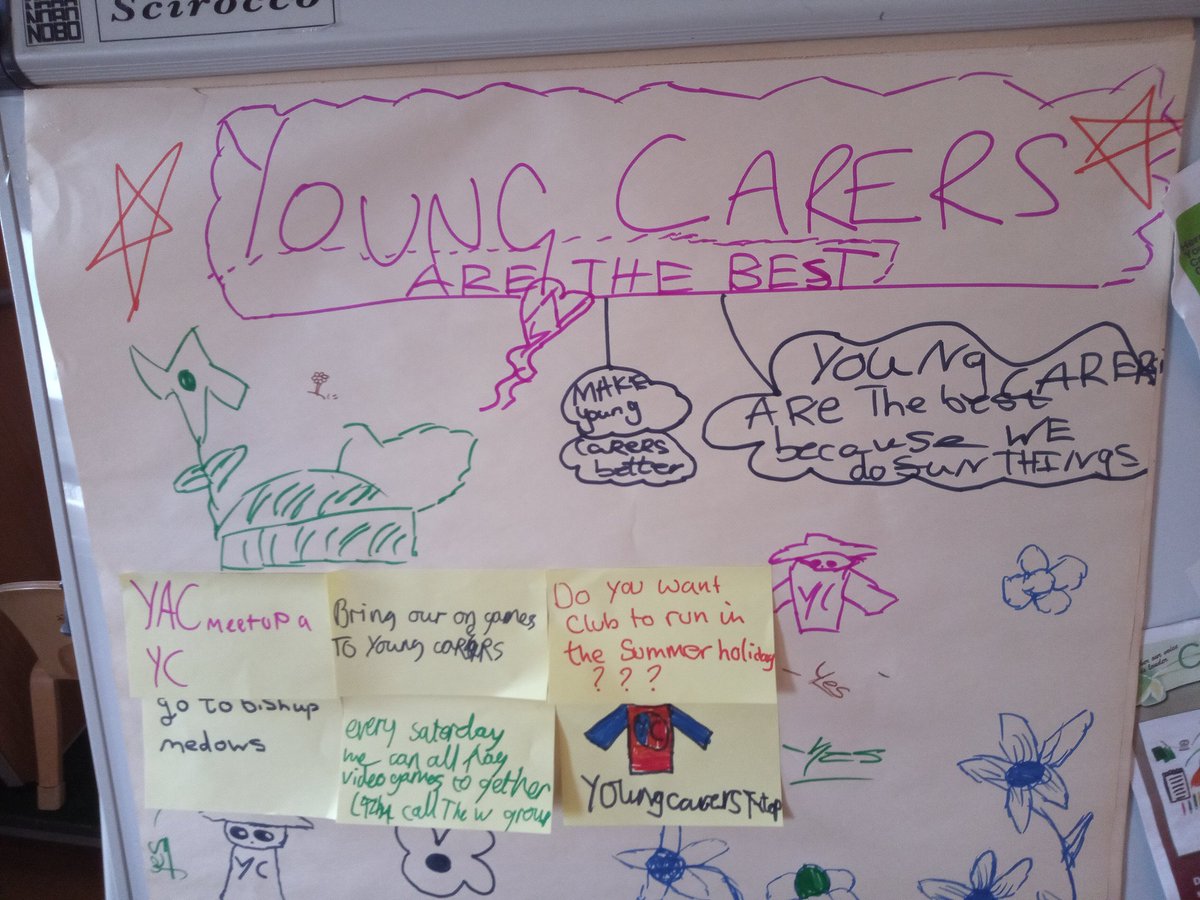 NOBO
Scirocco
YOUNG CARERS
ARE THE BEST
MAKE
young
CARERS
better
YOUNG
CARERS
ARE The best
because WE
do SUN THINGS
YAC meetup a
YC
Bring our on games
TO Young CARERS
Do you want
club to run in
the Summer holiday
? ? ?
YC
- Yes
-
go To Bishup
medows
every saturday
we can all play
video games to gether
call The w group
Young carers T-top
- Yes
Yes
YC